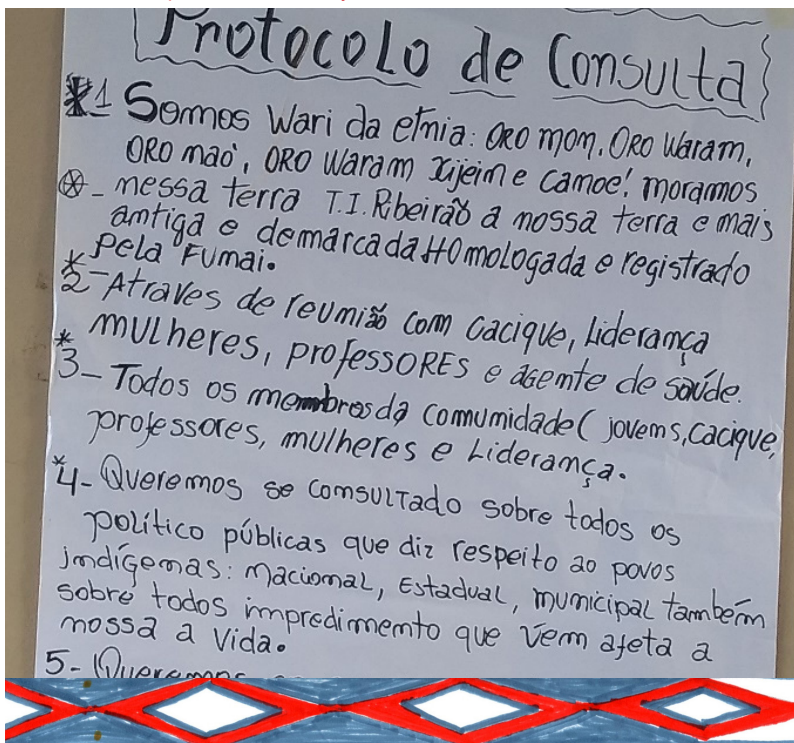 Protocolo de Consulta
1 Somos Wari da etnia: ORO mon, ORO Waram,
ORO mao', ORO Waram Xijein e Camoe! moramos
- nessa terra T.I. Ribeirão a nossa terra e mais
antiga e demarcada Homologada e registrado
pela Funai.
* 2 - Atraves de reunião com cacique, Liderança
mulheres, professores e agente de saúde.
* 3 - Todos os membros da comunidade ( jovens, cacique,
professores, mulheres e Liderança.
* 4 - Queremos se consultado sobre todos os
político públicas que diz respeito ao povos
indígenas: Nacional, Estadual, municipal também
sobre todos impredimento que vem afeta a
nossa a vida.
5 - Queremos